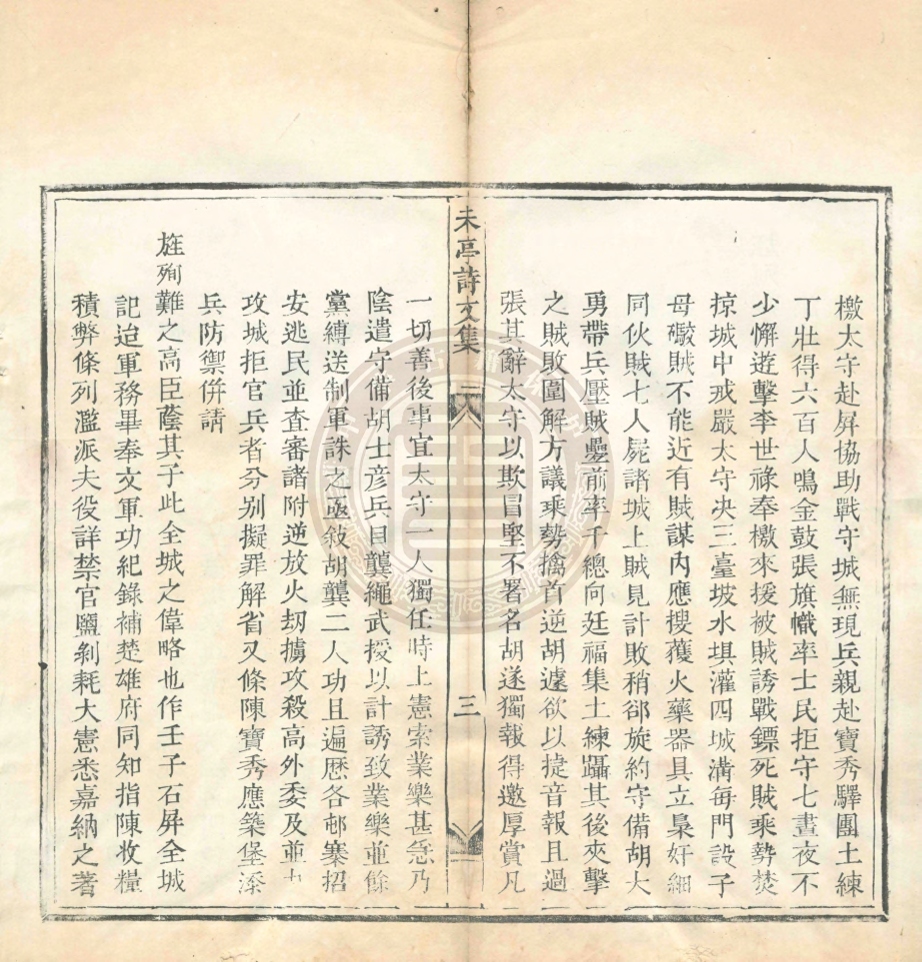 檄太守赴屏協助戰守城無現兵親赴寶秀驛團土練
丁壯得六百人鳴金鼓張旗幟率士民拒守七晝夜不
少懈遊擊李世祿奉檄來援被賊誘戰鏢死賊乘勢焚
掠城中戒嚴太守决三臺坡水垻灌四城溝每門設子
母礮賊不能近有賊謀内應搜獲火藥器具立梟奸細
同伙賊七人屍諸城上賊見計敗稍郤旋約守備胡大
勇帶兵壓賊壘前率千總向廷福集土練躡其後夾擊
之賊敗圍解方議乘勢擒首逆胡遽欲以捷音報且過
張其辭太守以欺冒堅不署名胡遂獨報得邀厚賞凡
未亭詩文集
三
一切善後事宜太守一人獨任時上憲索業樂甚急乃
陰遣守備胡士彦兵目龔繩武授以計誘致業樂並餘
黨縛送制軍誅之亟敍胡龔二人功且遍歷各邨寨招
安逃民並查審諸附逆放火刼擄攻殺高外委及並
攻城拒官兵者分别擬罪解省又條陳寶秀應築堡添
兵防禦併請
旌殉難之高臣蔭其子此全城之偉略也作壬子石屏全城
記迨軍務畢奉文軍功紀錄補楚雄府同知指陳收糧
積弊條列濫派夫役詳禁官鹽剝耗大憲悉嘉納之著